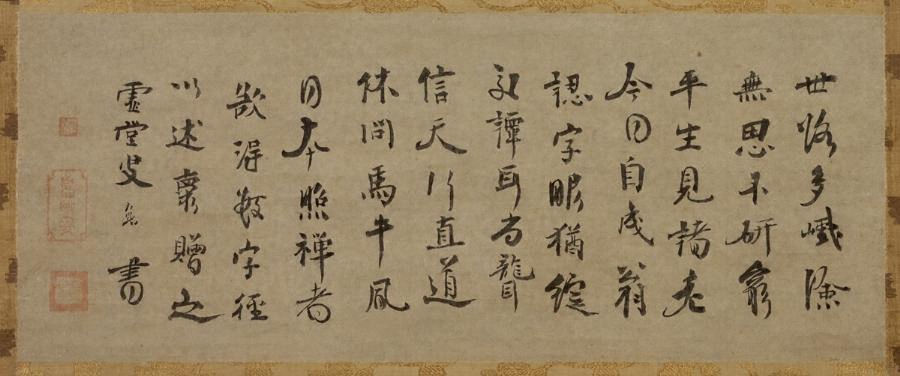 世路多巇險
無思不研窮
平生見諸老
今日自成翁
認字眼猶綻
交譚耳尚聾
信天行直道
休問馬牛風
日本照禅者
欲得數字徑
以述稾贈之
虚堂叟 書